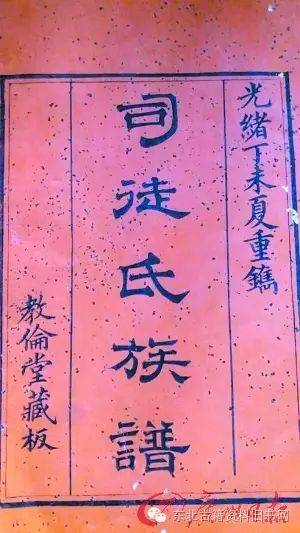 光緒丁未夏重鐫
司徒氏族譜
教倫堂藏板
东北古籍资料旧书网